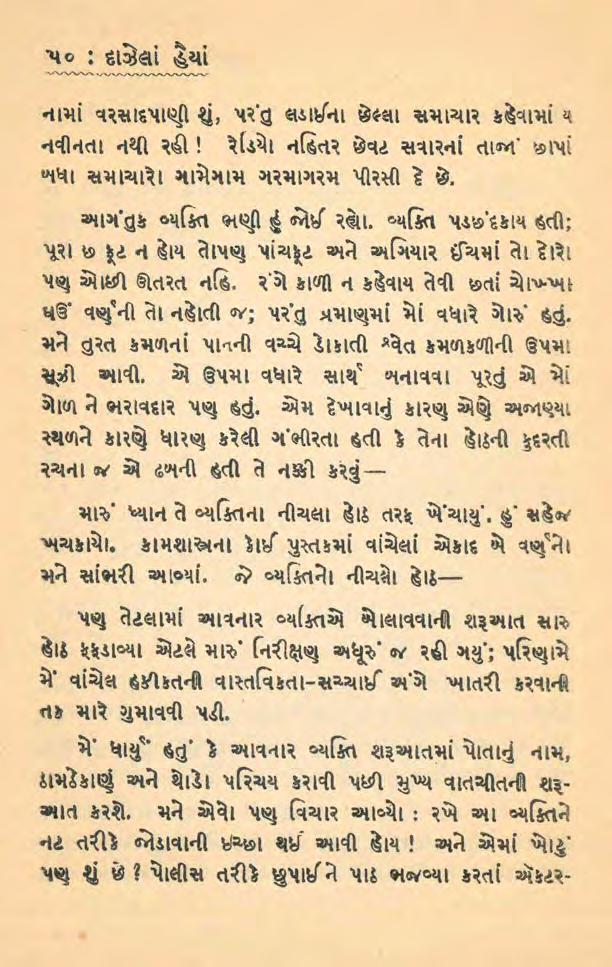 ૫૦ : દાઝેલાં હૈયાં
નામાં વરસાદપાણી શું, પરંતુ લડાઈના છેલ્લા સમાચાર કહેવામાં ય
નવીનતા નથી રહી ! રેડિયો નહિતર છેવટ સવારનાં તાજાં છાપાં
બધા સમાચારો ગામેગામ ગરમાગરમ પીરસી દે છે.
આગંતુક વ્યક્તિ ભણી હું જોઈ રહ્યો. વ્યક્તિ પડછંદકાય હતી;
પૂરા છ ફૂટ ન હોય તોપણ પાંચફૂટ અને અગિયાર ઈંચમાં તો દોરો
પણ ઓછી ઊતરત નહિ. રંગે કાળી ન કહેવાય તેવી છતાં ચોખ્ખા
ઘઉં વર્ણની તો નહોતી જ; પરંતુ પ્રમાણમાં મોં વધારે ગોરું હતું.
મને તુરત કમળનાં પાનની વચ્ચે ડોકાતી શ્વેત કમળકળીની ઉપમા
સૂઝી આવી. એ ઉપમા વધારે સાર્થ બનાવવા પૂરતું એ મોં
ગોળ ને ભરાવદાર પણ હતું. એમ દેખાવાનું કારણ એણે અજાણ્યા
સ્થળને કારણે ધારણ કરેલી ગંભીરતા હતી કે તેના હોઠની કુદરતી
રચના જ એ ઢબની હતી તે નક્કી કરવું—
મારું ધ્યાન તે વ્યક્તિના નીચલા હોઠ તરફ ખેંચાયું. હું સહેજ
ખચકાયો. કામશાસ્ત્રના કોઈ પુસ્તકમાં વાંચેલાં એકાદ બે વર્ણનો
મને સાંભરી આવ્યાં. જે વ્યક્તિનો નીચલો હોઠ—
પણ તેટલામાં આવનાર વ્યક્તિએ બોલાવવાની શરૂઆત સારુ
હોઠ ફફડાવ્યા એટલે મારું નિરીક્ષણ અધૂરું જ રહી ગયું; પરિણામે
મેં વાંચેલ હકીકતની વાસ્તવિકતા-સચ્ચાઈ અંગે ખાતરી કરવાની
તક મારે ગુમાવવી પડી.
મેં ધાર્યું હતું કે આવનાર વ્યક્તિ શરૂઆતમાં પોતાનું નામ,
ઠામઠેકાણું અને થોડો પરિચય કરાવી પછી મુખ્ય વાતચીતની શરૂ-
આત કરશે. મને એવો પણ વિચાર આવ્યો : રખે આ વ્યક્તિને
નટ તરીકે જોડાવાની ઇચ્છા થઈ આવી હોય ! અને એમાં ખોટું
પણ શું છે ? પોલીસ તરીકે છુપાઈને પાઠ ભજવ્યા કરતાં ઍક્ટર-